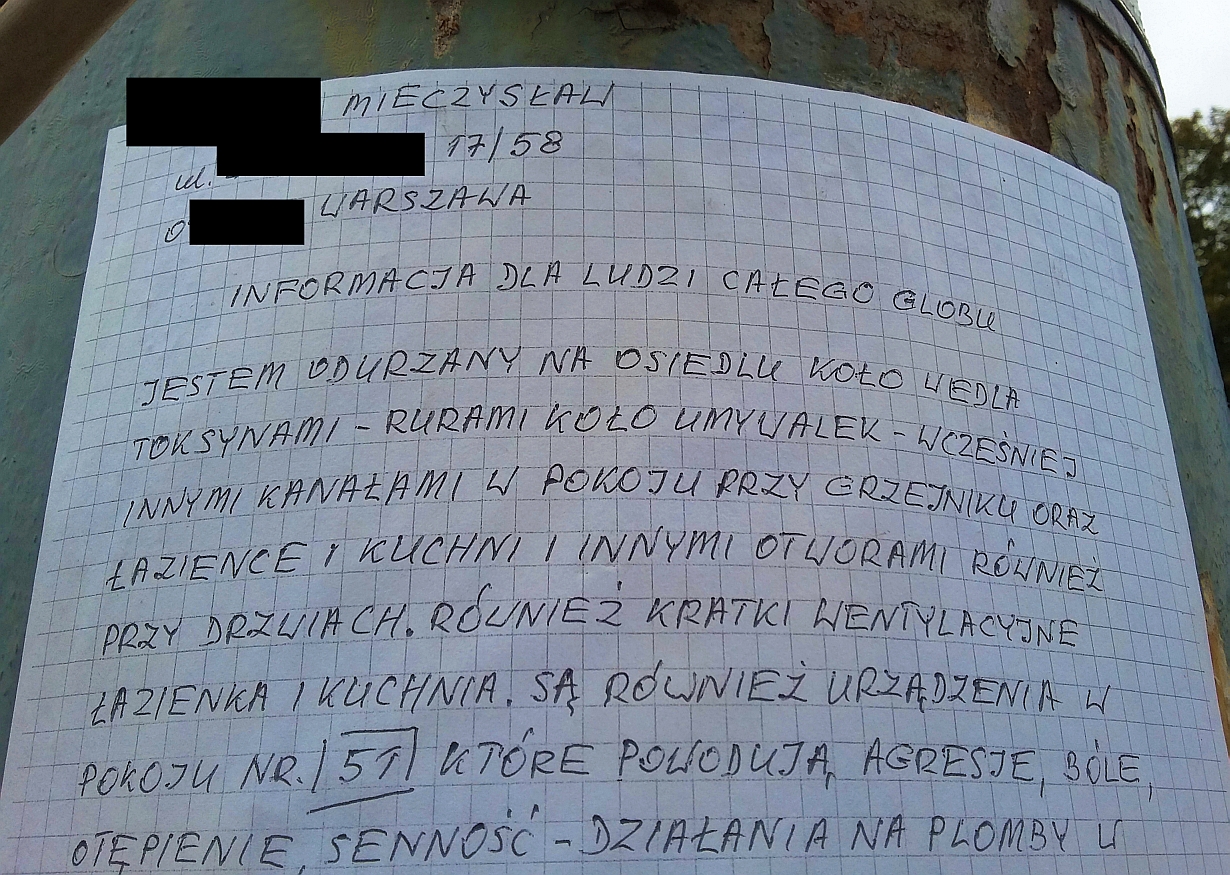 MIECZYSŁAW
ul. 17/58
0 WARSZAWA
INFORMACJA DLA LUDZI CAŁEGO GLOBU
JESTEM ODURZANY NA OSIEDLU KOŁO WEDLA
TOKSYNAMI - RURAMI KOŁO UMYWALEK - WCZEŚNIEJ
INNYMI KANAŁAMI W POKOJU PRZY GRZEJNIKU ORAZ
ŁAZIENCE I KUCHNI I INNYMI OTWORAMI RÓWNIEŻ
PRZY DRZWIACH. RÓWNIEŻ KRATKI WENTYLACYJNE
ŁAZIENKA I KUCHNIA. SĄ RÓWNIEŻ URZĄDZENIA W
POKOJU NR. 51 KTÓRE POWODUJĄ AGRESJE, BÓLE,
OTĘPIENIE, SENNOŚĆ - DZIAŁANIA NA PLOMBY W